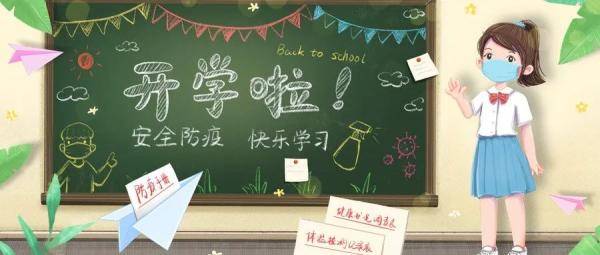 Back to school
开学啦！
安全防疫 快乐学习
防疫手册
健康状况调查表
体温检测记录表